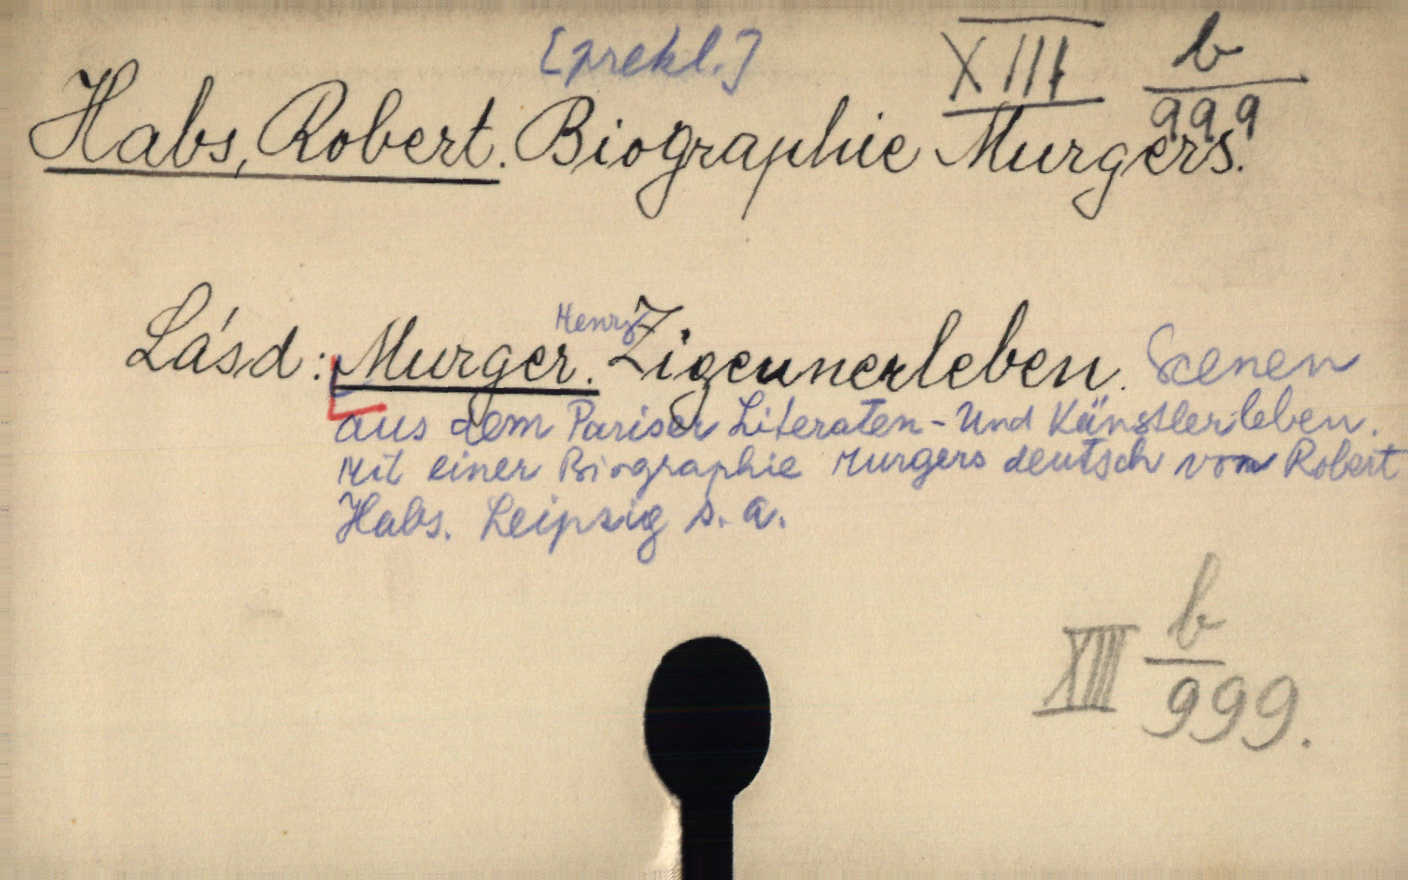 [prekl.]
XIII b/999
Habs, Robert. Biographie Murgers.
Lásd: Murger. Henry Zigeunerleben. Scenen
aus dem Pariser Literaten- Und Künstlerleben.
Mit einer Biographie Murgers deutsch von Robert
Habs. Leipzig s. a.
XIII b/999.